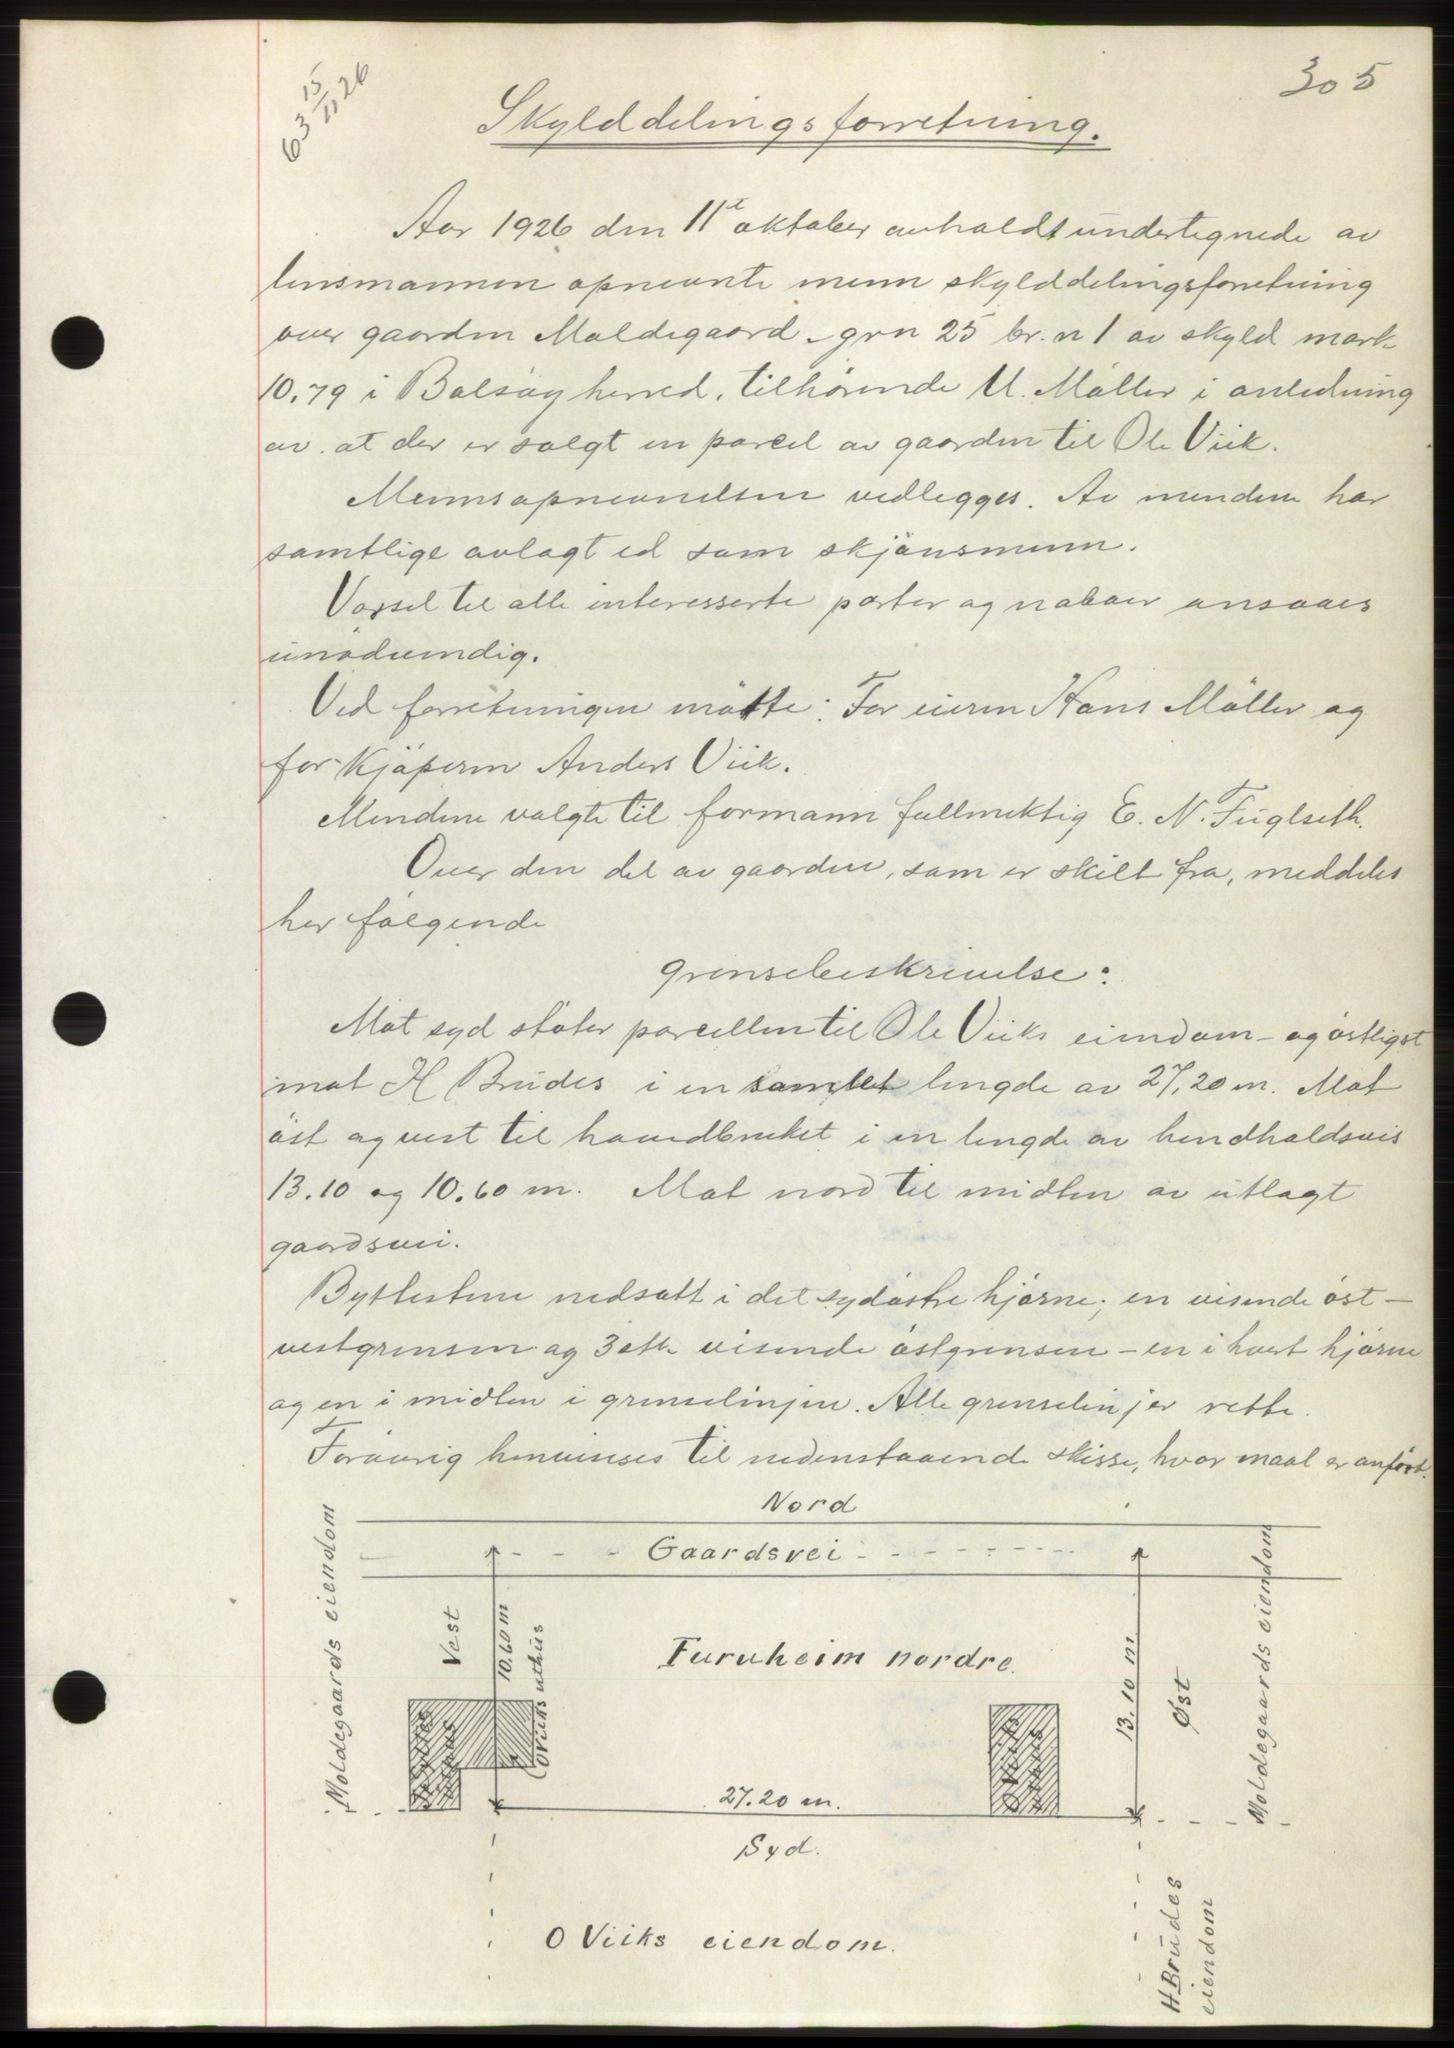 305
63 15/11 26
Skylddelingsforretning.
Aar 1926 den 11te oktober avholdt undertegnede av
lensmannen opnevnte menn skylddelingsforretning
over gaarden Moldegaard - grn 25 br. n 1 av skyld mark
10.79 i Bolsøy herred, tilhørende U. Møller i anledning
av at der er solgt en parcel av gaarden til Ole Viik.
Mennsopnevnelsen vedlegges. Av mendene har
samtlige avlagt ed som skjønsmenn.
Varsel til alle interesserte parter og naboer ansaaes
unødvendig.
Ved forretningen møtte: For eieren Hans Møller og
for kjøperen Anders Viik.
Mendene valgte til formann fullmektig E. N. Fuglseth.
Over den del av gaarden, som er skilt fra, meddeles
her følgende
grensebeskrivelse:
Mot syd støter parcellen til Ole Viiks eiendom - og østligst
mot H Brudes i en samlet lengde av 27,20 m. Mot
øst og vest til hovedbruket i en lengde av hendholdsvis
13.10 og 10.60 m. Mot nord til midten av utlagt
gaardsvei.
Byttestene nedsatt i det sydøstre hjørne; en visende øst-
vestgrensen og 3 stk. visende østgrensen - en i hvert hjørne
og en i midten i grenselinjen. Alle grenselinjer rette.
Forøvrig henvises til nedenstaaende skisse, hvor maal er anført.
Nord
Gaardsvei
Moldegaards eiendom
Vest
10.60 m
O Viiks uthus
Furuheim nordre.
13.10 m
Øst
Moldegaards eiendom
27.20 m.
Syd.
O Viiks eiendom.
H Brudes
eiendom